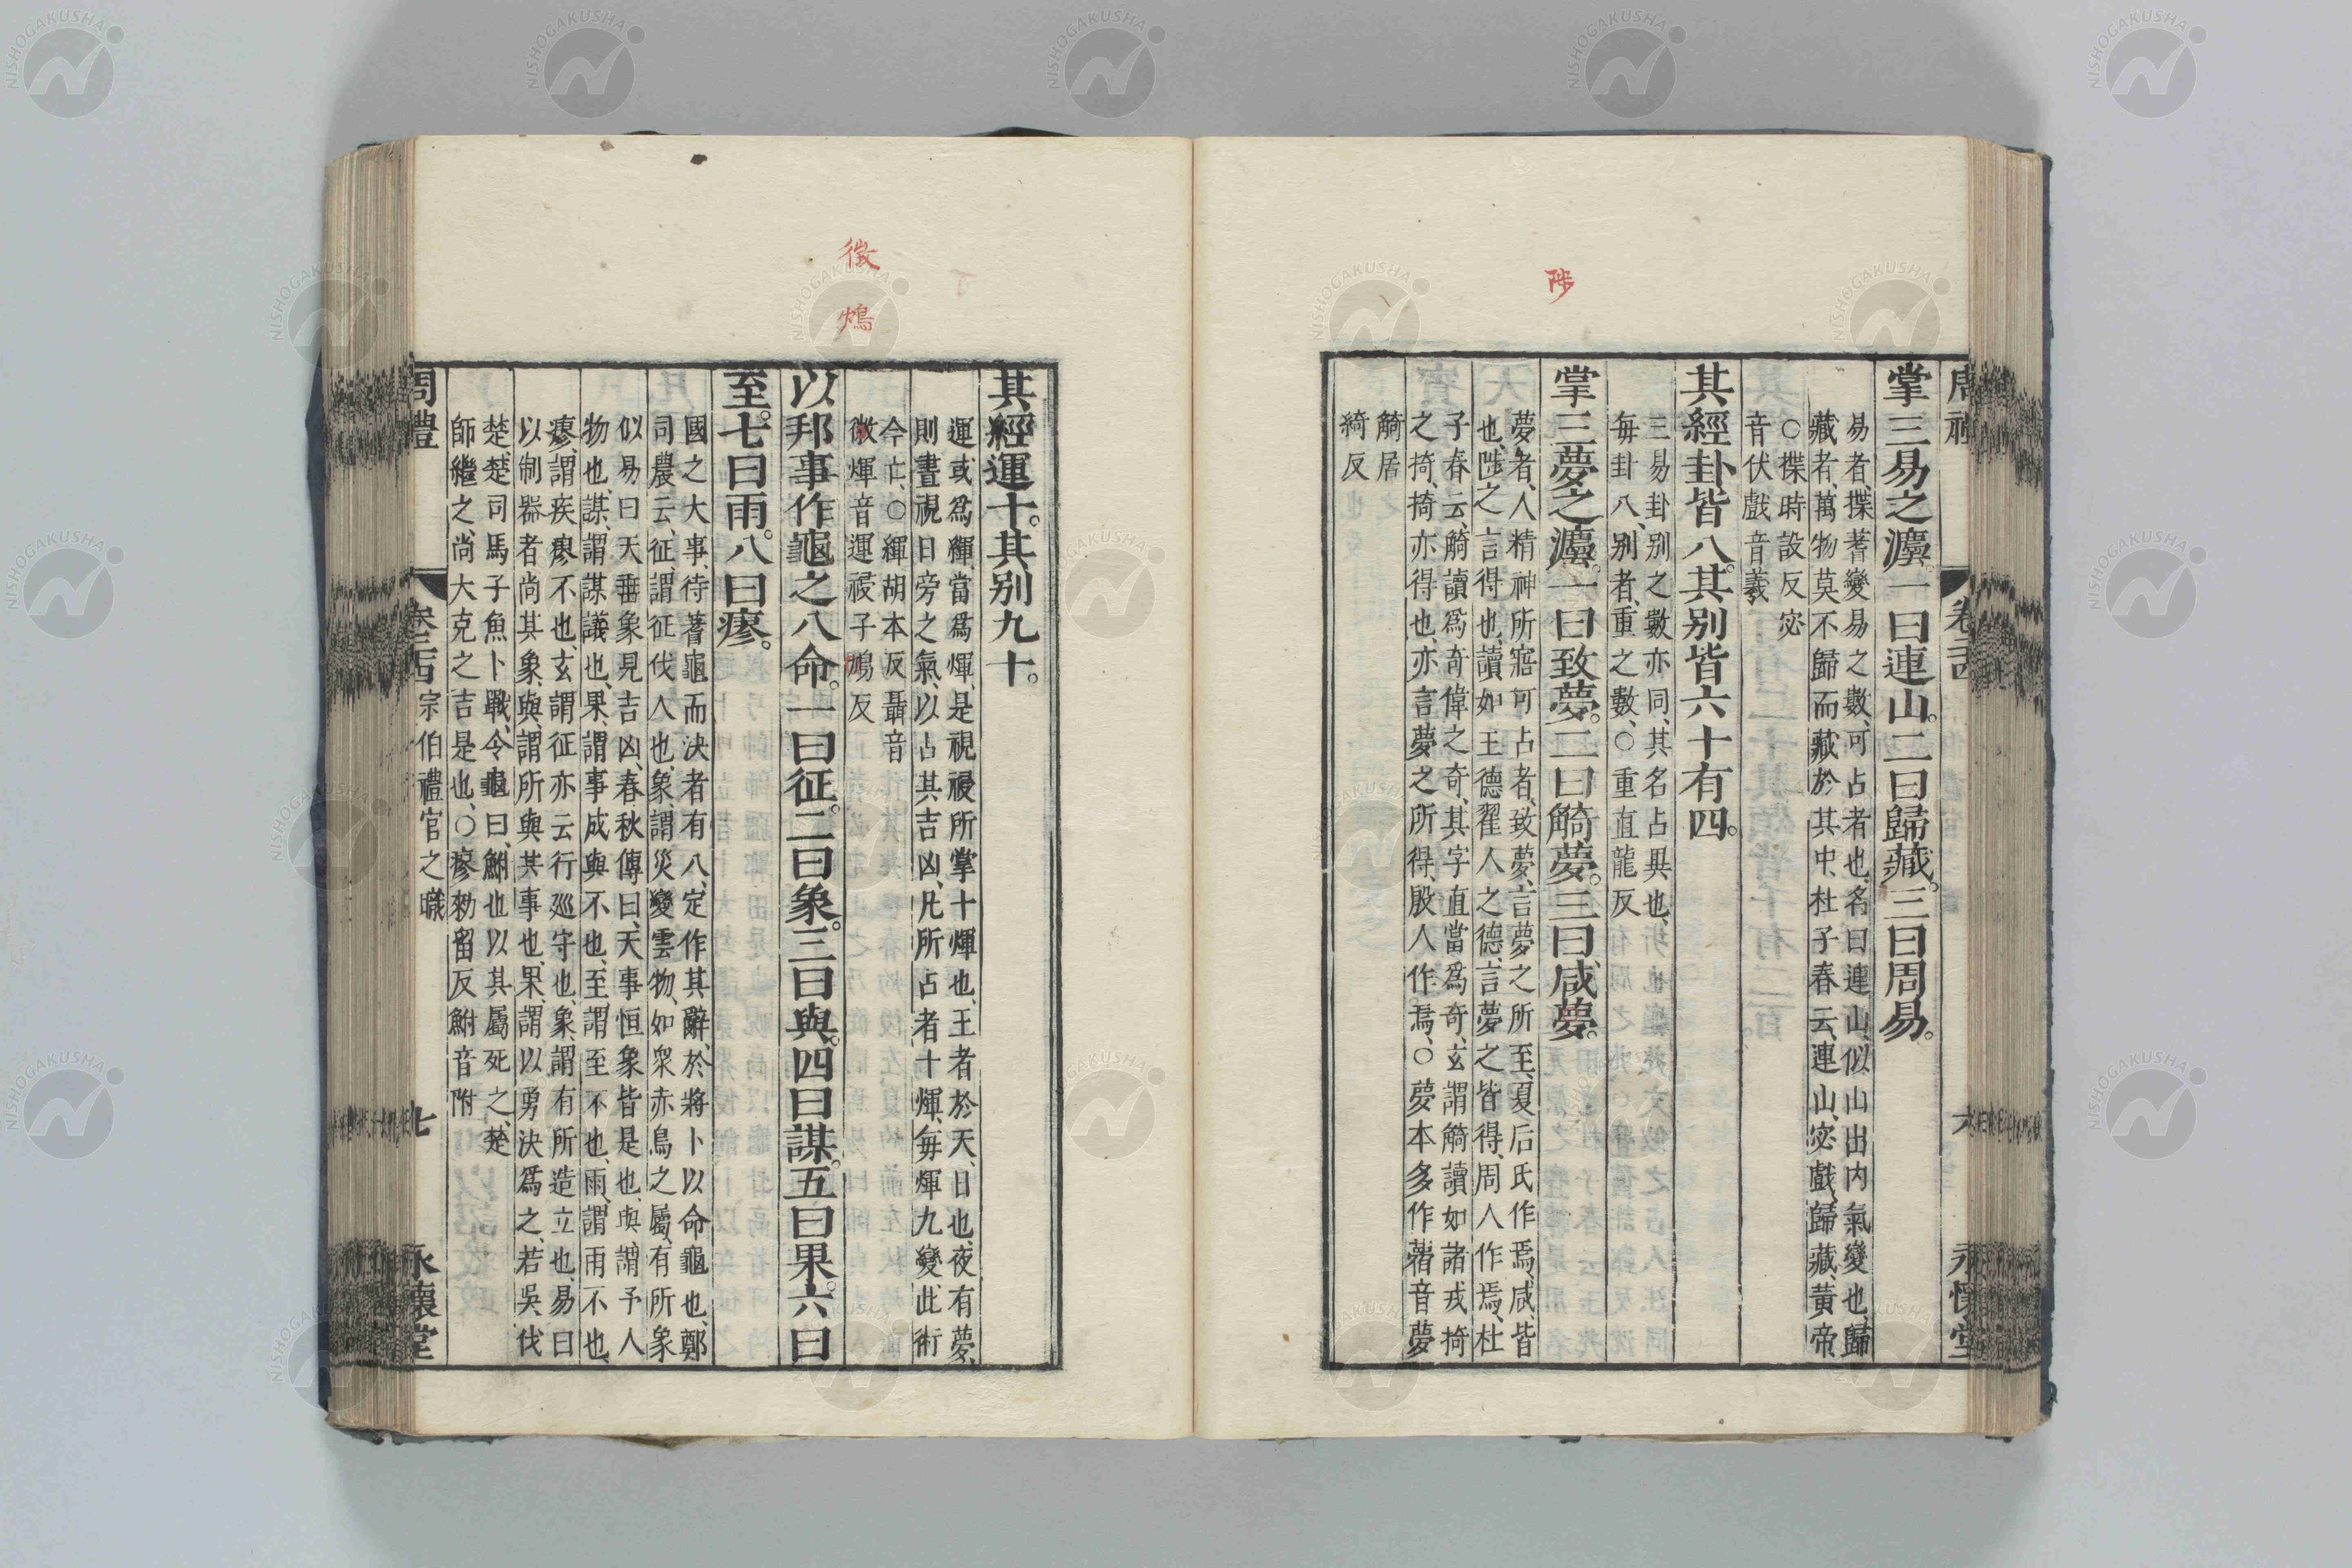 陟
周禮
卷二十四
六
永懷堂
掌三易之灋。一曰連山。二曰歸藏。三曰周易。
易者、揲蓍變易之數、可占者也、名曰連山、似山出內氣變也、歸
藏者、萬物莫不歸而藏於其中、杜子春云、連山、宓戲、歸藏、黃帝、
○揲時設反宓
音伏戲音羲
其經卦皆八。其別皆六十有四。
三易卦別之數亦同、其名占異也、
每卦八、別者、重之數、○重直龍反
掌三夢之灋。一曰致夢。二曰觭夢。三曰咸夢。
夢者、人精神所寤可占者、致夢、言夢之所至、夏后氏作焉、咸、皆
也、陟之言得也、讀如王德翟人之德、言夢之皆得、周人作焉、杜
子春云、觭讀爲奇偉之奇、其字直當爲奇、玄謂觭讀如諸戎掎
之掎、掎亦得也、亦言夢之所得、殷人作焉、○夢本多作㝱音夢
觭居
綺反
徵
鴆
其經運十。其別九十。
運、或爲緷、當爲煇、是視祲所掌十煇也、王者於天、日也、夜有夢、
則晝視日旁之氣、以占其吉凶、凡所占者十煇、每煇九變、此術
今亡、○緷胡本反聶音
徵煇音運祲子鴆反
以邦事作龜之八命。一曰征。二曰象。三曰與。四曰謀。五曰果。六曰
至。七曰雨。八曰瘳。
國之大事、待蓍龜而決者有八、定作其辭、於將卜以命龜也、鄭
司農云、征、謂征伐人也、象、謂災變雲物、如衆赤鳥之屬、有所象
似、易曰天垂象見吉凶、春秋傳曰、天事恒象皆是也、與、謂予人
物也、謀、謂謀議也、果、謂事成與不也、至、謂至不也、雨、謂雨不也、
瘳、謂疾瘳不也、玄謂征亦云行巡守也、象、謂有所造立也、易曰
以制器者尚其象、與、謂所與共事也、果、謂以勇決爲之、若吳伐
楚、楚司馬子魚卜戰、令龜曰、鮒也以其屬死之、楚
師繼之、尚大克之吉是也、○瘳勑留反鮒音附
周禮
卷二十四
宗伯禮官之職
七
永懷堂